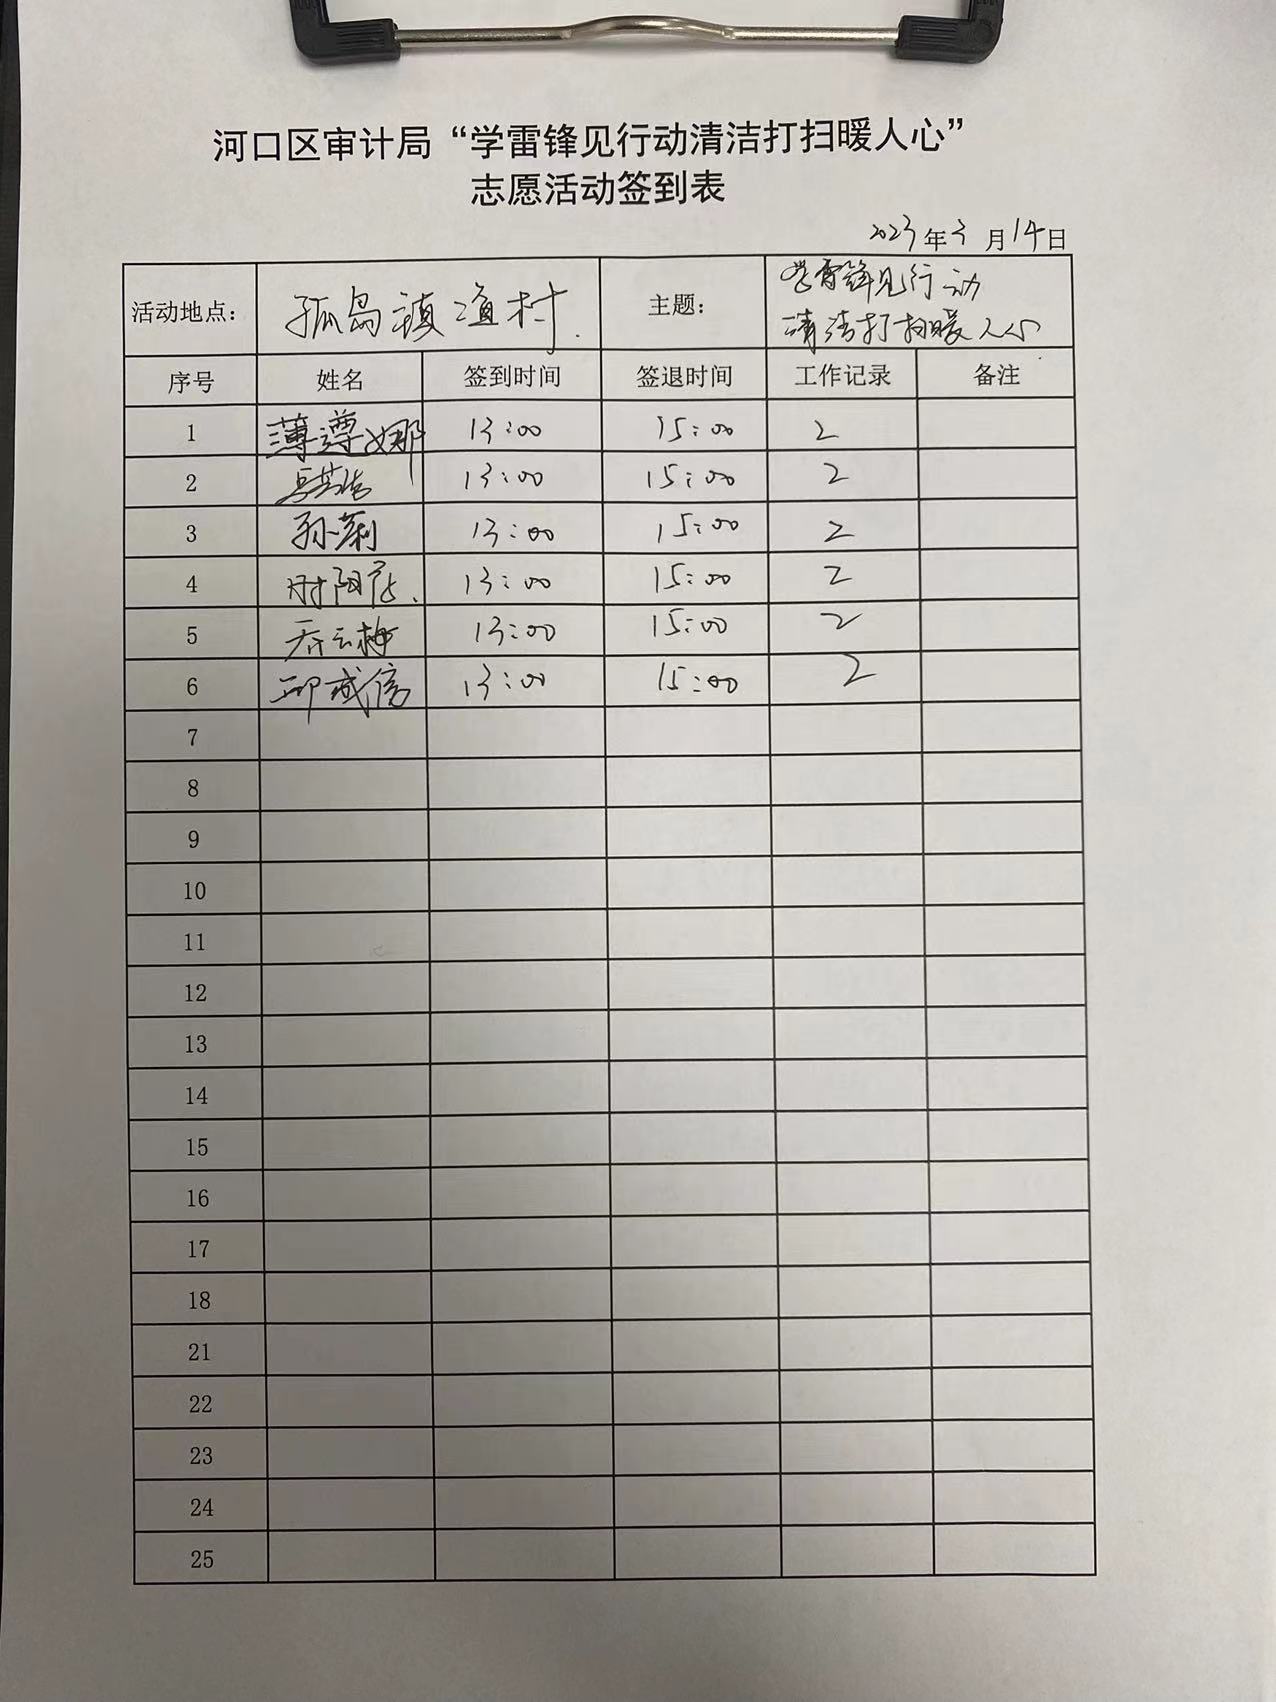 河口区审计局“学雷锋见行动清洁打扫暖人心”
志愿活动签到表
2023年3月14日
活动地点： 孤岛镇渔村 主题： 学雷锋见行动
清洁打扫暖人心
序号 姓名 签到时间 签退时间 工作记录 备注
1 薄遵娜 13:00 15:00 2
2 13:00 15:00 2
3 孙莉 13:00 15:00 2
4 13:00 15:00 2
5 乔云梅 13:00 15:00 2
6 13:00 15:00 2
7
8
9
10
11
12
13
14
15
16
17
18
21
22
23
24
25